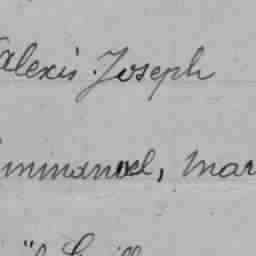 Alexis Joseph
mmanuel, mar